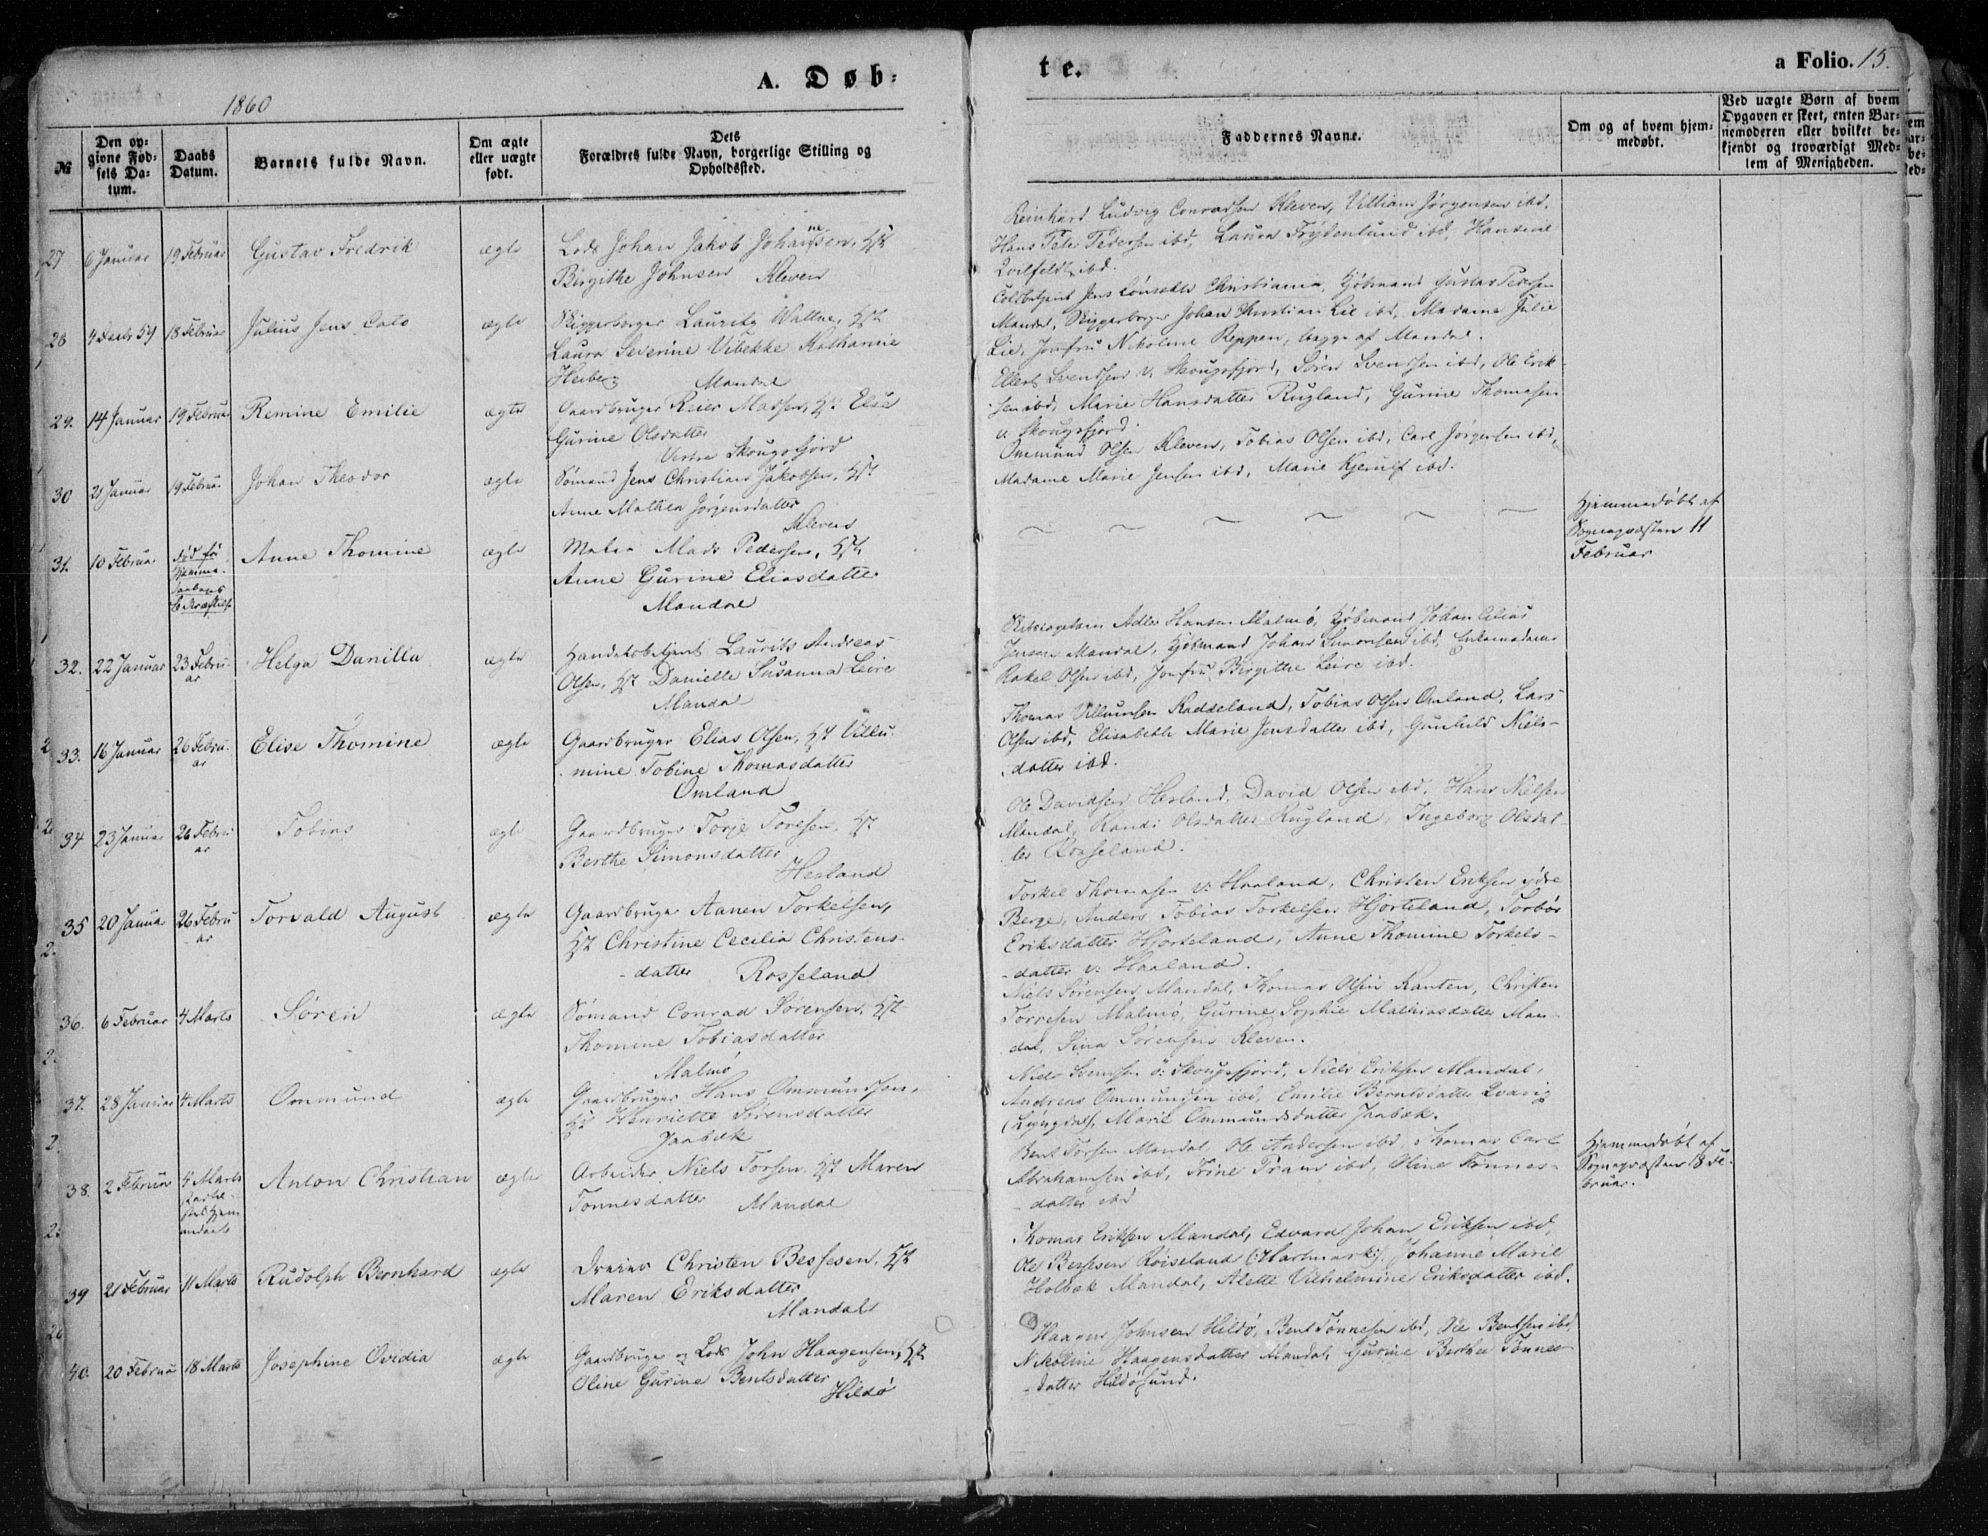 A. Døb-
te.
a Folio. 15.
1860
№
Den op-
givne Fød-
sels Da-
tum.
Daabs
Datum.
Barnets fulde Navn.
Om ægte
eller uægte
født.
Dets
Forældres fulde Navn, borgerlige Stilling og
Opholdssted.
Faddernes Navne.
Om og af hvem hjem-
medøbt.
Ved uægte Børn af hvem
Opgaven er skeet, enten Bar-
nemoderen eller hvilket be-
kjendt og troværdigt Med-
lem af Menigheden.
27 6 Januar 19 Februar Gustav Fredrik ægte Lods Johan Jakob Johannesen, Hst
Birgithe Johnsen Kleven
Reinhard Ludvig Conradsen Kleven, Villiam Jørgensen ibd,
Hans Peter Pedersen ibd, Laura Frydenlund ibd, Hansine
Qvilfeldt ibd.
28 4 Decbr 59 18 Februar Julius Jens Cato ægte Skipperborger Lauritz Wattne, Hst
Laura Severine Vibekke Kathanne
Heiberg Mandal
Toldbetjent Jens Christiania, Kjøbmand Gustav Petersen
Mandal, Skipperborger Johan Christian Lie ibd, Madame Julie
Lie, Jomfru Nikoline Reppen, begge af Mandal.
29. 14 Januar 19 Februar Remine Emilie ægte Gaardbruger Reier Madsen, Hst Elise
Gurine Olsdatter
Vestre Skougsfjord
Ellert Svendsen v. Skougsfjord, Søren Svensen ibd, Ole Erik-
sen ibd, Marie Hansdatter Rugland, Gurine Thomasen
v. Skougsfjord.
30 21 Januar 19 Februar Johan Theodor ægte Sømand Jens Christian Jakobsen, Hst
Anne Mathea Jørgensdatter
Kleven
Ommund Olsen Kleven, Tobias Olsen ibd, Carl Jørgensen ibd,
Madame Marie Jensen ibd, Marie Kjerulf ibd.
31. 10 Februar Død før
Anne Thomine ægte Mads Pedersen, Hst
Anne Gurine Eliasdatter
Mandal
Hjemmedøbt af
Sognepræsten 11
Februar
32. 22 Januar 23 Febru-
ar Helga Danilla ægte Handelsbetjent Laurits Andreas
Olsen, Hst Danielle Susanna Leire
Mandal
Adler Hansen Malmø, Kjøbmand Johan
Jensen Mandal, Kjøbmand Johan Simonsen ibd, Enkemadame
Rakel Olsen ibd, Jomfru Birgithe Leire ibd.
33. 16 Januar 26 Febru-
ar Elise Thomine ægte Gaardbruger Elias Olsen, Hst Villu-
mine Tobine Thomasdatter
Omland
Thomas Villumsen Raddeland, Tobias Olsen Omland, Lars
Olsen ibd, Elisabeth Marie Jensdatter ibd, Gunhild Niels-
datter ibd.
34 23 Januar 26 Febru-
ar Tobias ægte Gaardbruger Torje Toresen, Hst
Berthe Simonsdatter
Hesland
Ole Davidsen Hesland, David Olsen ibd, Hans Nielsen
Mandal, Randi Olsdatter Rugland, Ingeborg Olsdat-
ter Rosseland.
35 20 Januar 26 Febru-
ar Torvald August ægte Gaardbruger Aanen Torkelsen,
Hst Christine Cecilia Christens-
datter Rosseland
Torkel Thomasen v: Haaland, Christen Eriksen ydre
Berge, Anders Tobias Torkelsen Hjorteland, Torbør
Eriksdatter Hjorteland, Anne Thomine Torkels-
datter v: Haaland.
36. 6 Februar 4 Marts Søren ægte Sømand Conrad Sørensen, Hst
Thomine Tobiasdatter
Malmø
Niels Sørensen Mandal, Thomas Olsen Ranten, Christen
Torresen Malmø, Gurine Sophie Mathiasdatter Man-
dal, Sina Sørensen Kleven.
37. 28 Januar 4 Marts Ommund ægte Gaardbruger Hans Ommundsen,
Hst Henriette Sørensdatter
Jaabæk
Niels Svensen ø: Skougsfjord, Niels Eriksen Mandal,
Andreas Ommundsen ibd, Emilie Berntsdatter Qvavig
(Lyngdal), Marie Ommundsdatter Jaabæk.
38. 2 Februar 4 Marts
Anton Christian ægte Arbeider Niels Torsen, Hst Maren
Tønnesdatter Mandal
Bent Torsen Mandal, Ole Andersen ibd, Thomas Carl
Abrahamsen ibd, Trine Trans ibd, Oline Tønnes-
datter ibd
Hjemmedøbt af
Sognepræsten 8 Fe-
bruar.
39 21 Februar 11 Marts Rudolph Bernhard ægte Dreier Christen Bessesen, Hst
Maren Eriksdatter
Mandal
Thomas Eriksen Mandal, Edvard Johan Eriksen ibd,
Ole Bessesen Røiseland (:Hartmark:), Johanne Marie
Holbæk Mandal, Alette Vilhelmine Eriksdatter ibd.
40. 20 Februar 18 Marts Josephine Ovidia ægte Gaardbruger og Lods John Haagensen, Hst
Oline Gurine Bentsdatter
Hildø
Haagen Johnsen Hildø, Bent Tønnesen ibd, Ole Bentsen ibd,
Nikoline Haagensdatter Mandal, Gurine Berthea Tønnes-
datter Hildøsund.